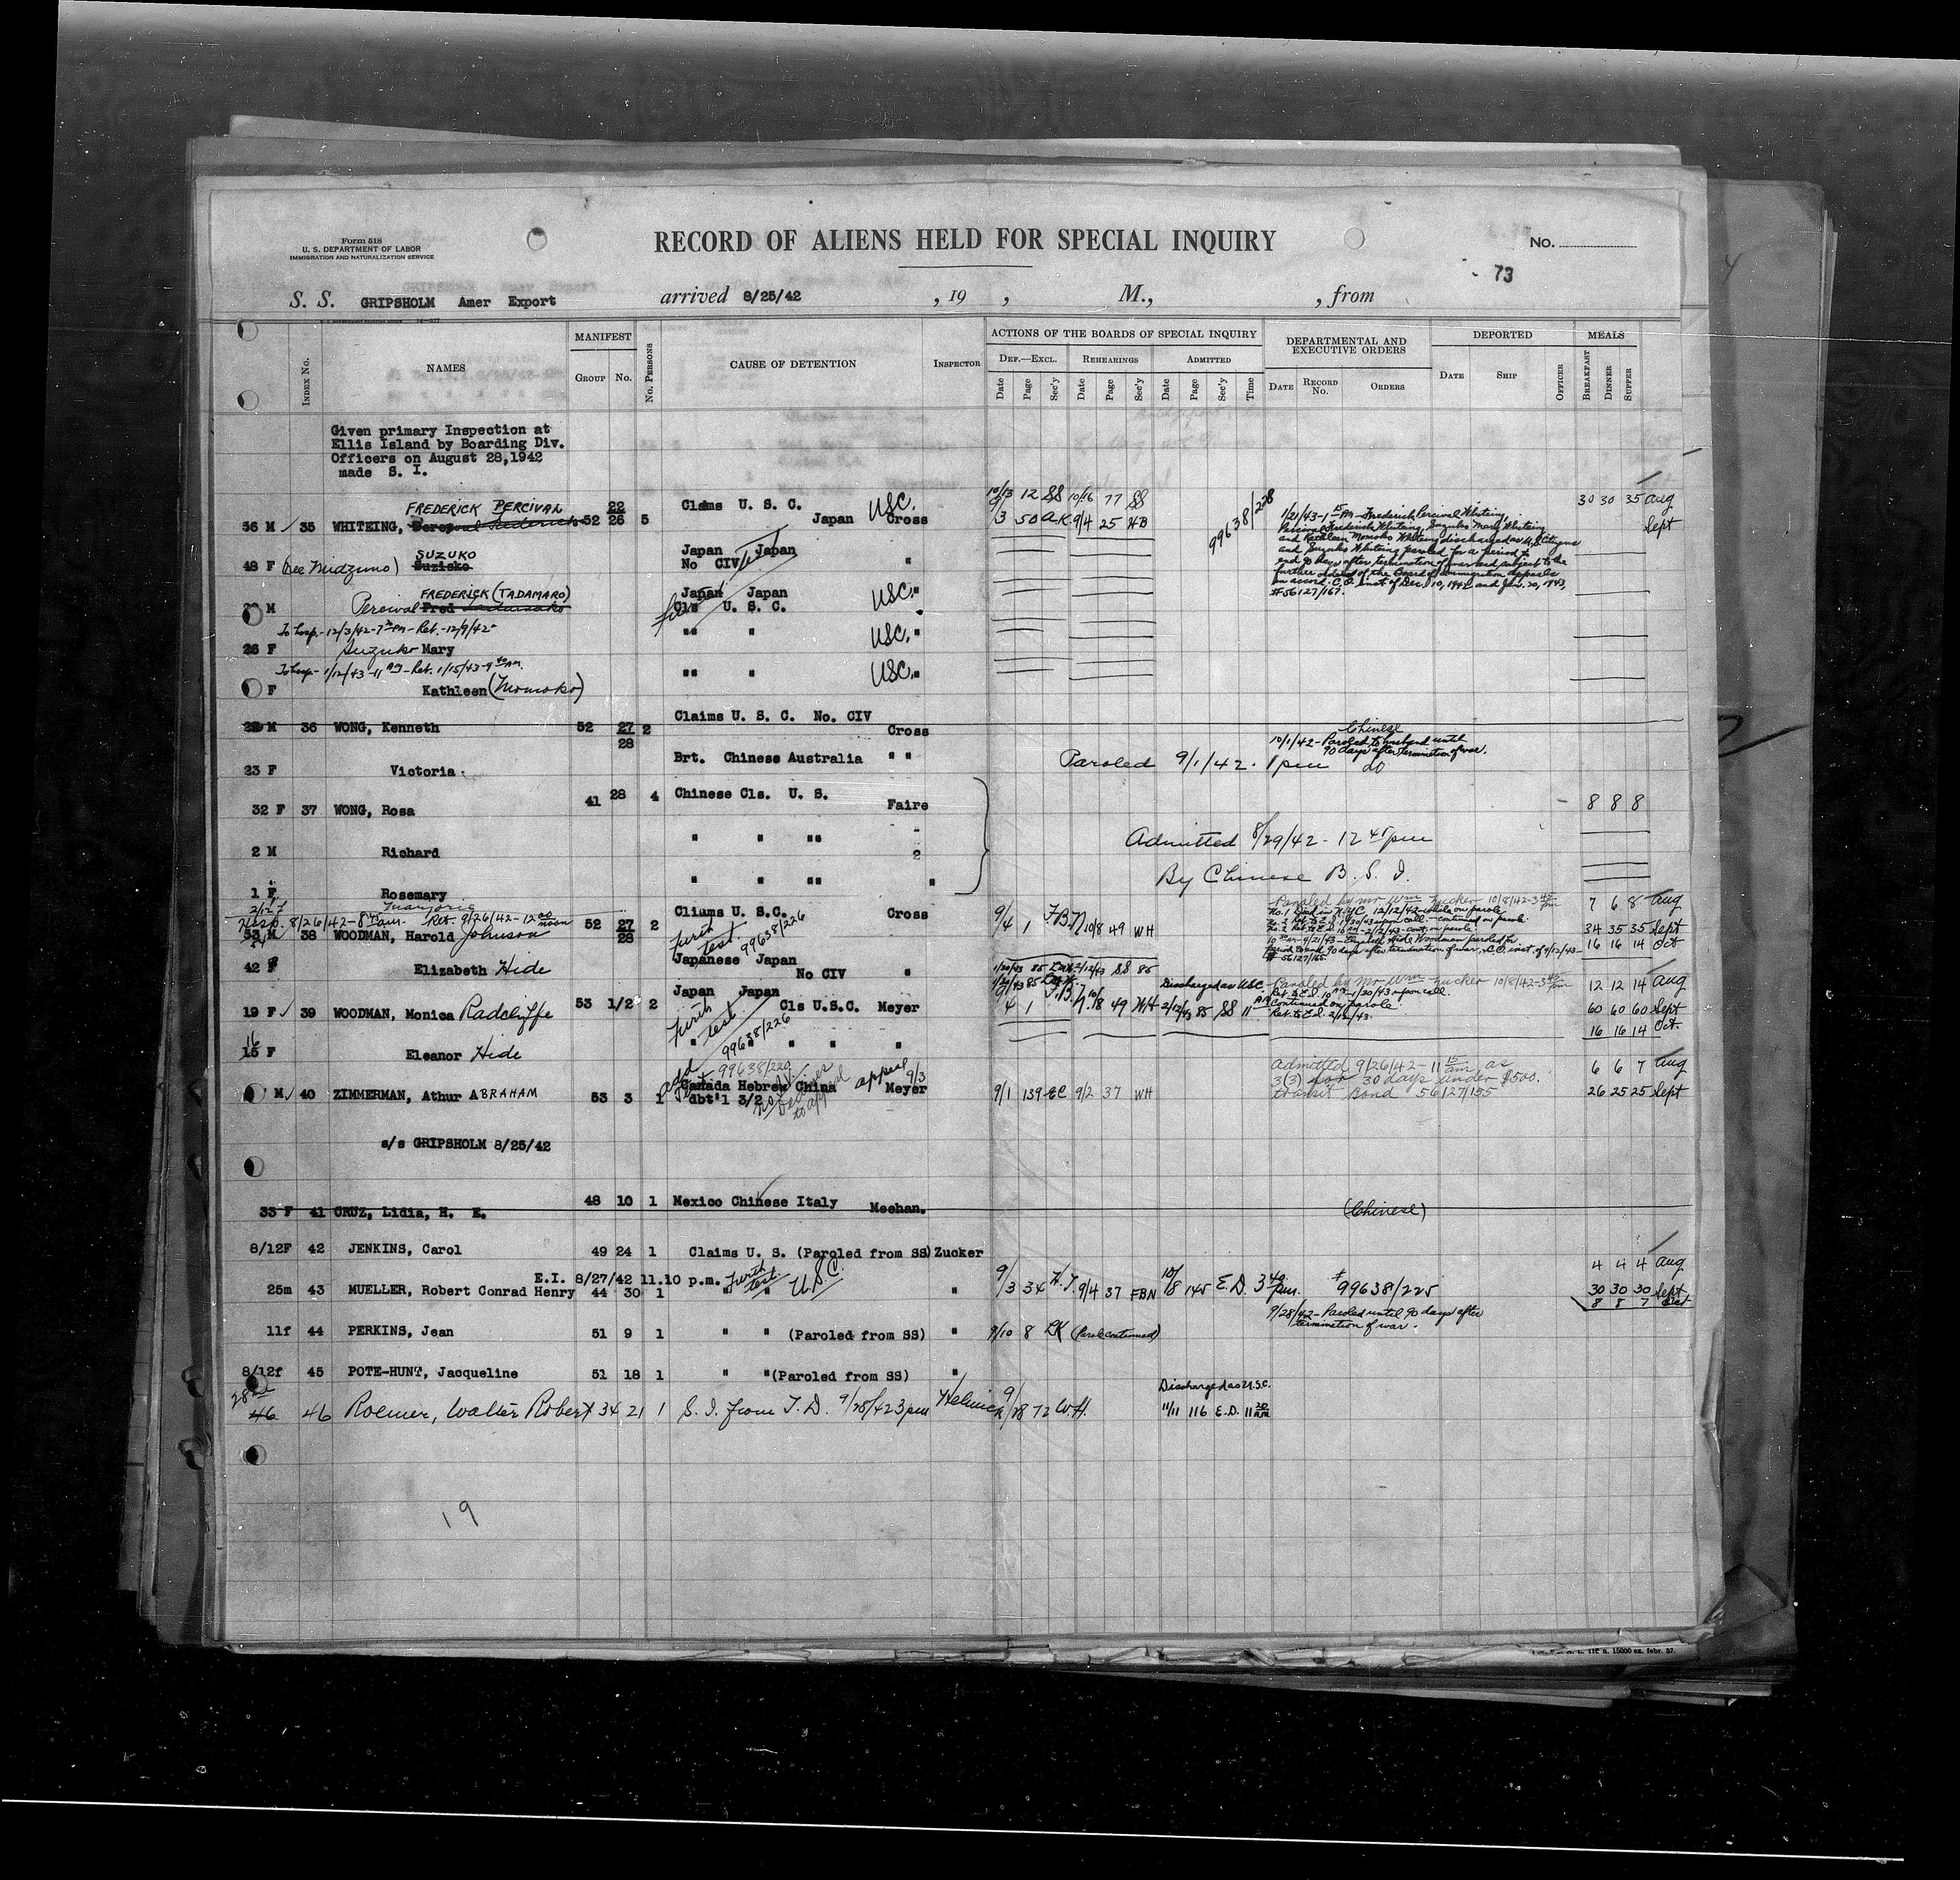 Form 518
U. S. DEPARTMENT OF LABOR
IMMIGRATION AND NATURALIZATION SERVICE
RECORD OF ALIENS HELD FOR SPECIAL INQUIRY
No.
73
S. S. GRIPSHOLM Amer Export arrived 8/25/42 , 19 , M., , from
INDEX NO. NAMES MANIFEST GROUP NO. NO. PERSONS CAUSE OF DETENTION INSPECTOR
ACTIONS OF THE BOARDS OF SPECIAL INQUIRY
DEF.—EXCL. REHEARINGS ADMITTED
Date Page Sec'y Date Page Sec'y Date Page Sec'y Time
DEPARTMENTAL AND EXECUTIVE ORDERS
DATE RECORD NO. ORDERS
DEPORTED
DATE SHIP OFFICER
MEALS
BREAKFAST DINNER SUPPER
Given primary Inspection at
Ellis Island by Boarding Div.
Officers on August 28,1942
made S. I.
FREDERICK PERCIVAL 22 Claims U. S. C. USC. 10/13 12 SS 10/16 77 SS 30 30 35 Aug
56 M 35 WHITEING, 52 26 5 Japan Cross 9/3 50 A.K 9/4 25 HB 99638/228 Sept
1/21/43-1 PM-Frederick Percival Whiteing,
Percival Frederick Whiteing, Suzuko Mary Whiteing
and Kathleen Momoko Whiteing discharged as U.S. Citizens
and Suzuko Whiteing paroled for a period to
end 90 days after termination of war and subject to the
further orders of the Board of Immigration Appeals
on accord. C.O. inst of Dec. 10, 1942 and Jan. 20, 1943,
#56127/167.
SUZUKO Japan Japan
48 F (nee Midzuno) Suzisko No CIV "
FREDERICK (TADAMARO) Japan Japan
M Percival Fred Cls U. S. C. USC. "
To hosp.-12/3/42-7 PM-Ret.-12/9/42 " " USC. "
26 F Suzuko Mary
To hosp-1/12/43-11 AM-Ret. 1/15/43-9 40 AM. " " USC. "
F Kathleen (Momoko)
Claims U. S. C. No. CIV
M 36 WONG, Kenneth 52 27 2 Cross Chinese
28
10/1/42-Paroled to husband until
90 days after termination of war.
Brt. Chinese Australia " "
23 F Victoria Paroled 9/1/42. 1 pm do
32 F 37 WONG, Rosa 41 28 4 Chinese Cls. U. S. Faire 8 8 8
" " " "
2 M Richard Admitted 8/29/42-12 45 pm
" " " "
1 F Rosemary By Chinese B. S. I.
2/12 F Marjorie
Hosp. 8/26/42-8 45 am. Ret. 9/26/42-12 00 noon
53 M 38 WOODMAN, Harold Johnson 52 27 2 Claims U. S. C. Cross 9/4 1 F.B.N 10/8 49 WH
28 furth test. 99638/226
Paroled by Mr Wm Zucker 10/8/42-3 45 pm 7 6 8 Aug
No. 1 Died in N.Y.C. 12/12/42 while on parole.
34 35 35 Sept
16 16 14 Oct
#56127/165
Japanese Japan
42 F Elizabeth Hide No CIV "
1/20/43 85 2/12/43 SS 85
Japan Japan
19 F 39 WOODMAN, Monica Radcliffe 53 1/2 2 Cls U.S.C. Meyer
furth test. 99638/226
4 1 49 WH 2/12/43 85 SS 11 AM
Discharged as USC
Paroled by Mr Wm Zucker 10/8/42-3 45 pm
Ret. to E.I. 10 AM-1/20/43 upon call.
Continued on parole.
Ret. to E.I. 2/12/43.
12 12 14 Aug
60 60 60 Sept
16 16 14 Oct.
16
15 F Eleanor Hide " " " "
99638/220
M 40 ZIMMERMAN, Athur ABRAHAM 53 3 1 Canada Hebrew China dbt'l 3/2 appeal 9/3 Meyer 9/1 139 EC 9/2 37 WH
Admitted 9/26/42-11 15 am as
3(3) for 30 days under $500.
transit Bond 56127/155
6 6 7 Aug
26 25 25 Sept
s/s GRIPSHOLM 8/25/42
33 F 41 CRUZ, Lidia, H. E. 48 10 1 Mexico Chinese Italy Meehan. (Chinese)
8/12F 42 JENKINS, Carol 49 24 1 Claims U. S. (Paroled from SS) Zucker
E.I. 8/27/42 11.10 p.m. Furth test. U.S.C.
25m 43 MUELLER, Robert Conrad Henry 44 30 1 " " " 9/3 34 H.J. 9/4 37 FBN 10/8 145 E.D. 3 40 pm. #99638/225
4 4 4 Aug
30 30 30 Sept
8 8 7 Oct
9/28/42-Paroled until 90 days after
termination of war.
11f 44 PERKINS, Jean 51 9 1 " " (Paroled from SS) " 9/10 8 (Parol continued)
8/12f 45 POTE-HUNT, Jacqueline 51 18 1 " " (Paroled from SS) "
Discharged as U.S.C.
28
46 46 Roemer, Walter Robert 34 21 1 S. I. from T. D. 9/28/42 3 pm 9/28 72 W.H. 11/11 116 E.D. 11 30 AM
19
15000 ex. febr. 37.